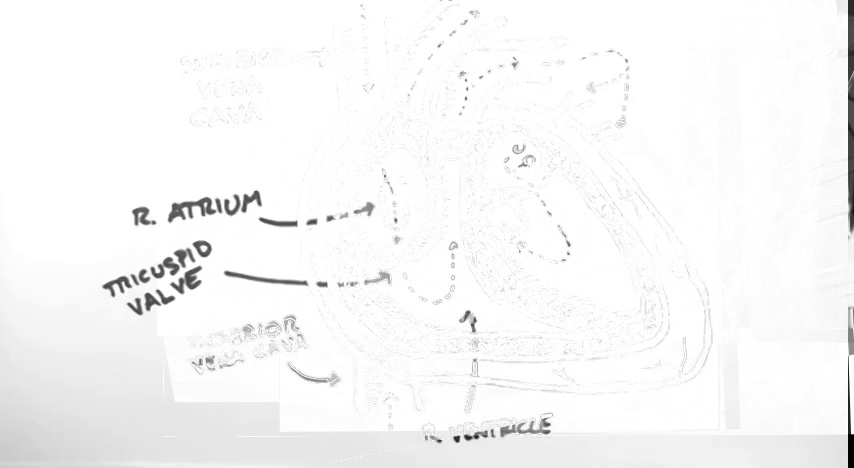 SUPERIOR
VENA
CAVA
R. ATRIUM
TRICUSPID
VALVE
VENA CAVA
R. VENTRICLE